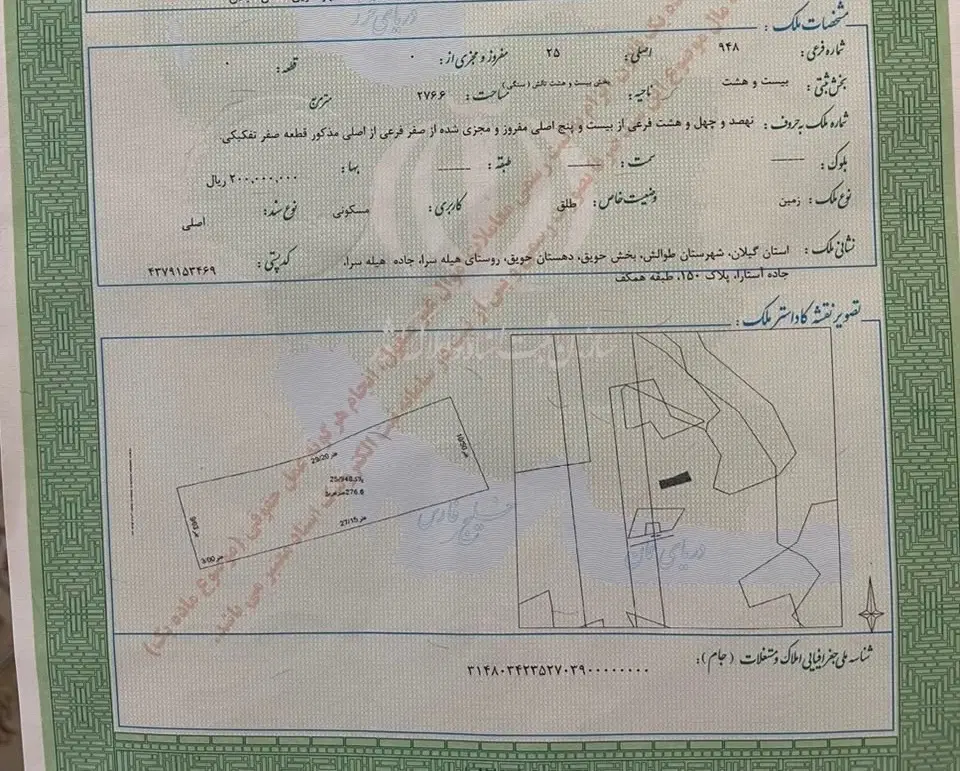 مشخصات ملک :
شماره فرعی : ۹۴۸ اصلی : ۲۵ مفروز و مجزی از : ۰ قطعه : ۰
بخش ثبتی : بیست و هشت ناحیه : بخش بیست و هشت تالش (سنگی) مساحت : ۲۷۶.۶ مترمربع
شماره ملک به حروف : نهصد و چهل و هشت فرعی از بیست و پنج اصلی مفروز و مجزی شده از صفر فرعی از اصلی مذکور قطعه صفر تفکیکی.
بلوک : سمت : طبقه : بها : ۲۰۰,۰۰۰,۰۰۰ ریال
نوع ملک : زمین وضعیت خاص : طلق کاربری : مسکونی نوع سند : اصلی
نشانی ملک : استان گیلان، شهرستان طوالش، بخش حویق، دهستان حویق، روستای هیله سرا، جاده هیله سرا،
جاده آستارا، پلاک ۱۵۰، طبقه همکف
کدپستی : ۴۳۷۹۱۵۳۴۶۹
تصویر نقشه کاداستر ملک :
29/20 متر
10/50 متر
پلاک 25/948
276.6 مترمربع
27/15 متر
3/00 متر
خلیج فارس
دریای عمان
شناسه ملی جغرافیایی املاک و مستغلات (جام) : ۳۱۴۸۰۳۴۲۳۵۲۷۰۳۹۰۰۰۰۰۰۰۰۰